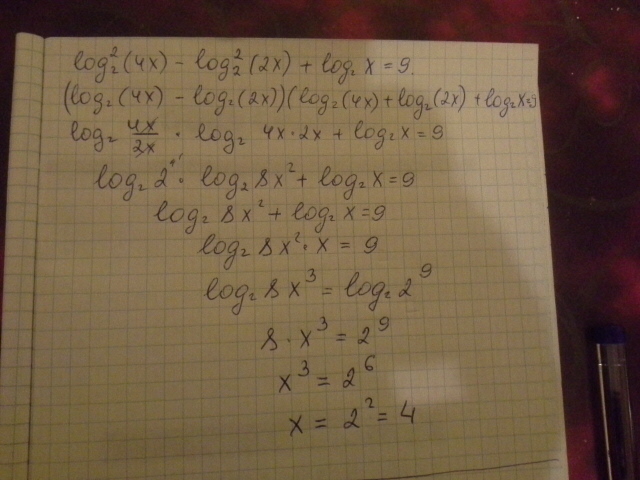 log₂²(4x) - log₂²(2x) + log₂ x = 9.
(log₂(4x) - log₂(2x))(log₂(4x) + log₂(2x) + log₂x = 9
log₂ 4x/2x · log₂ 4x·2x + log₂ x = 9
log₂ 2¹ · log₂ 8x² + log₂ x = 9
log₂ 8x² + log₂ x = 9
log₂ 8x² · x = 9
log₂ 8x³ = log₂ 2⁹
8 · x³ = 2⁹
x³ = 2⁶
x = 2² = 4